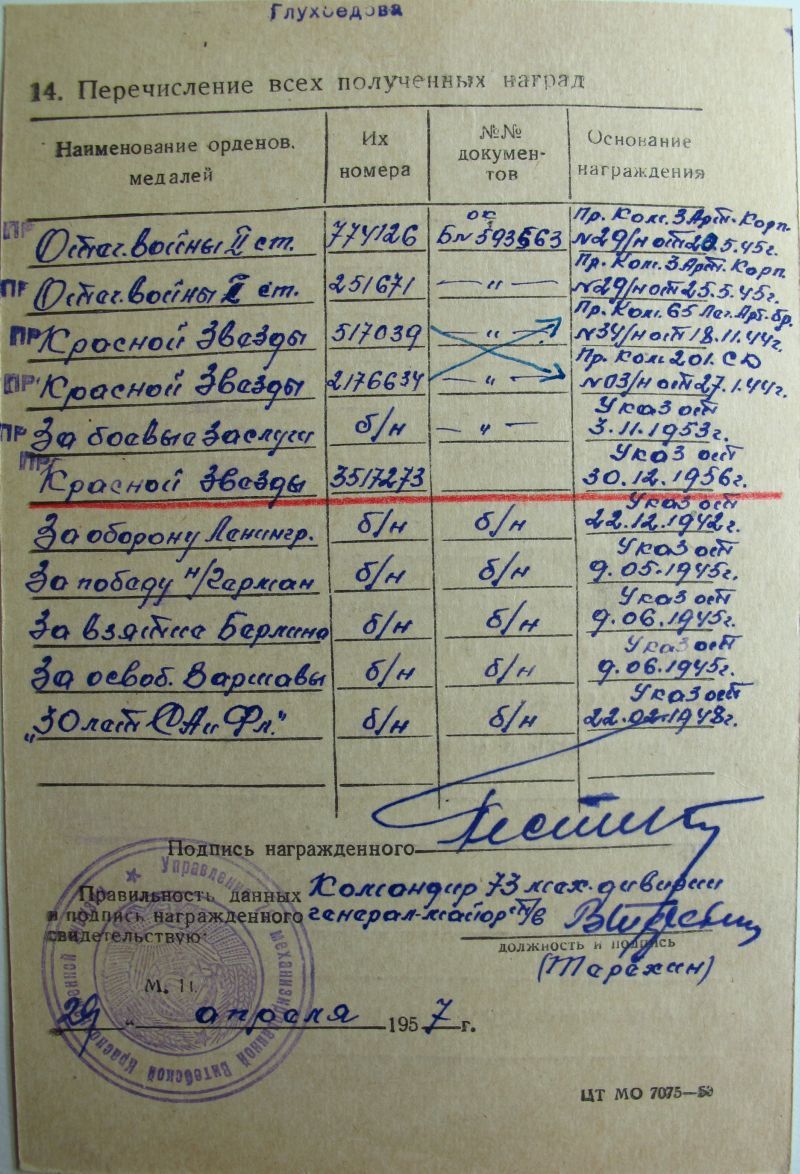 Глухоедова
14. Перечисление всех полученных наград
Наименование орденов, медалей
Их номера
№№ документов
Основание награждения
ПР Отеч. войны II ст. 774126 ок Бн 593563 Пр. Ком. 3 Арт. Корп. №29/н от 25.5.45г.
ПР Отеч. войны I ст. 251671 —"— Пр. Ком. 3 Арт. Корп №29/н от 25.5.45г.
ПР Красной Звезды 517039 —"— Пр. Ком. 65 Лег. Арт. бр. №34/н от 18.11.44г.
ПР Красной Звезды 2176634 —"— Пр. Ком 201. СД №03/н от 27.1.44г.
ПР За боевые заслуги б/н —"— Указ от 3.11.1953г.
ПР Красной Звезды 3517273 Указ от 30.12.1956г.
За оборону Ленингр. б/н б/н Указ от 22.12.1942г.
За победу н/Герман б/н б/н Указ от 9.05.1945г.
За взятие Берлина б/н б/н Указ от 9.06.1945г.
За освоб. Варшавы б/н б/н Указ от 9.06.1945г.
"30 лет СА и Фл." б/н б/н Указ от 22.02.1948г.
Подпись награжденного
Правильность данных и подпись награжденного свидетельствую:
Командир 73 мех. дивизии
генерал-майор т/в
должность и подпись
(Тарахин)
М. П.
29 " апреля 1957 г.
Управление механизированной Витебской
ЦТ МО 7075—